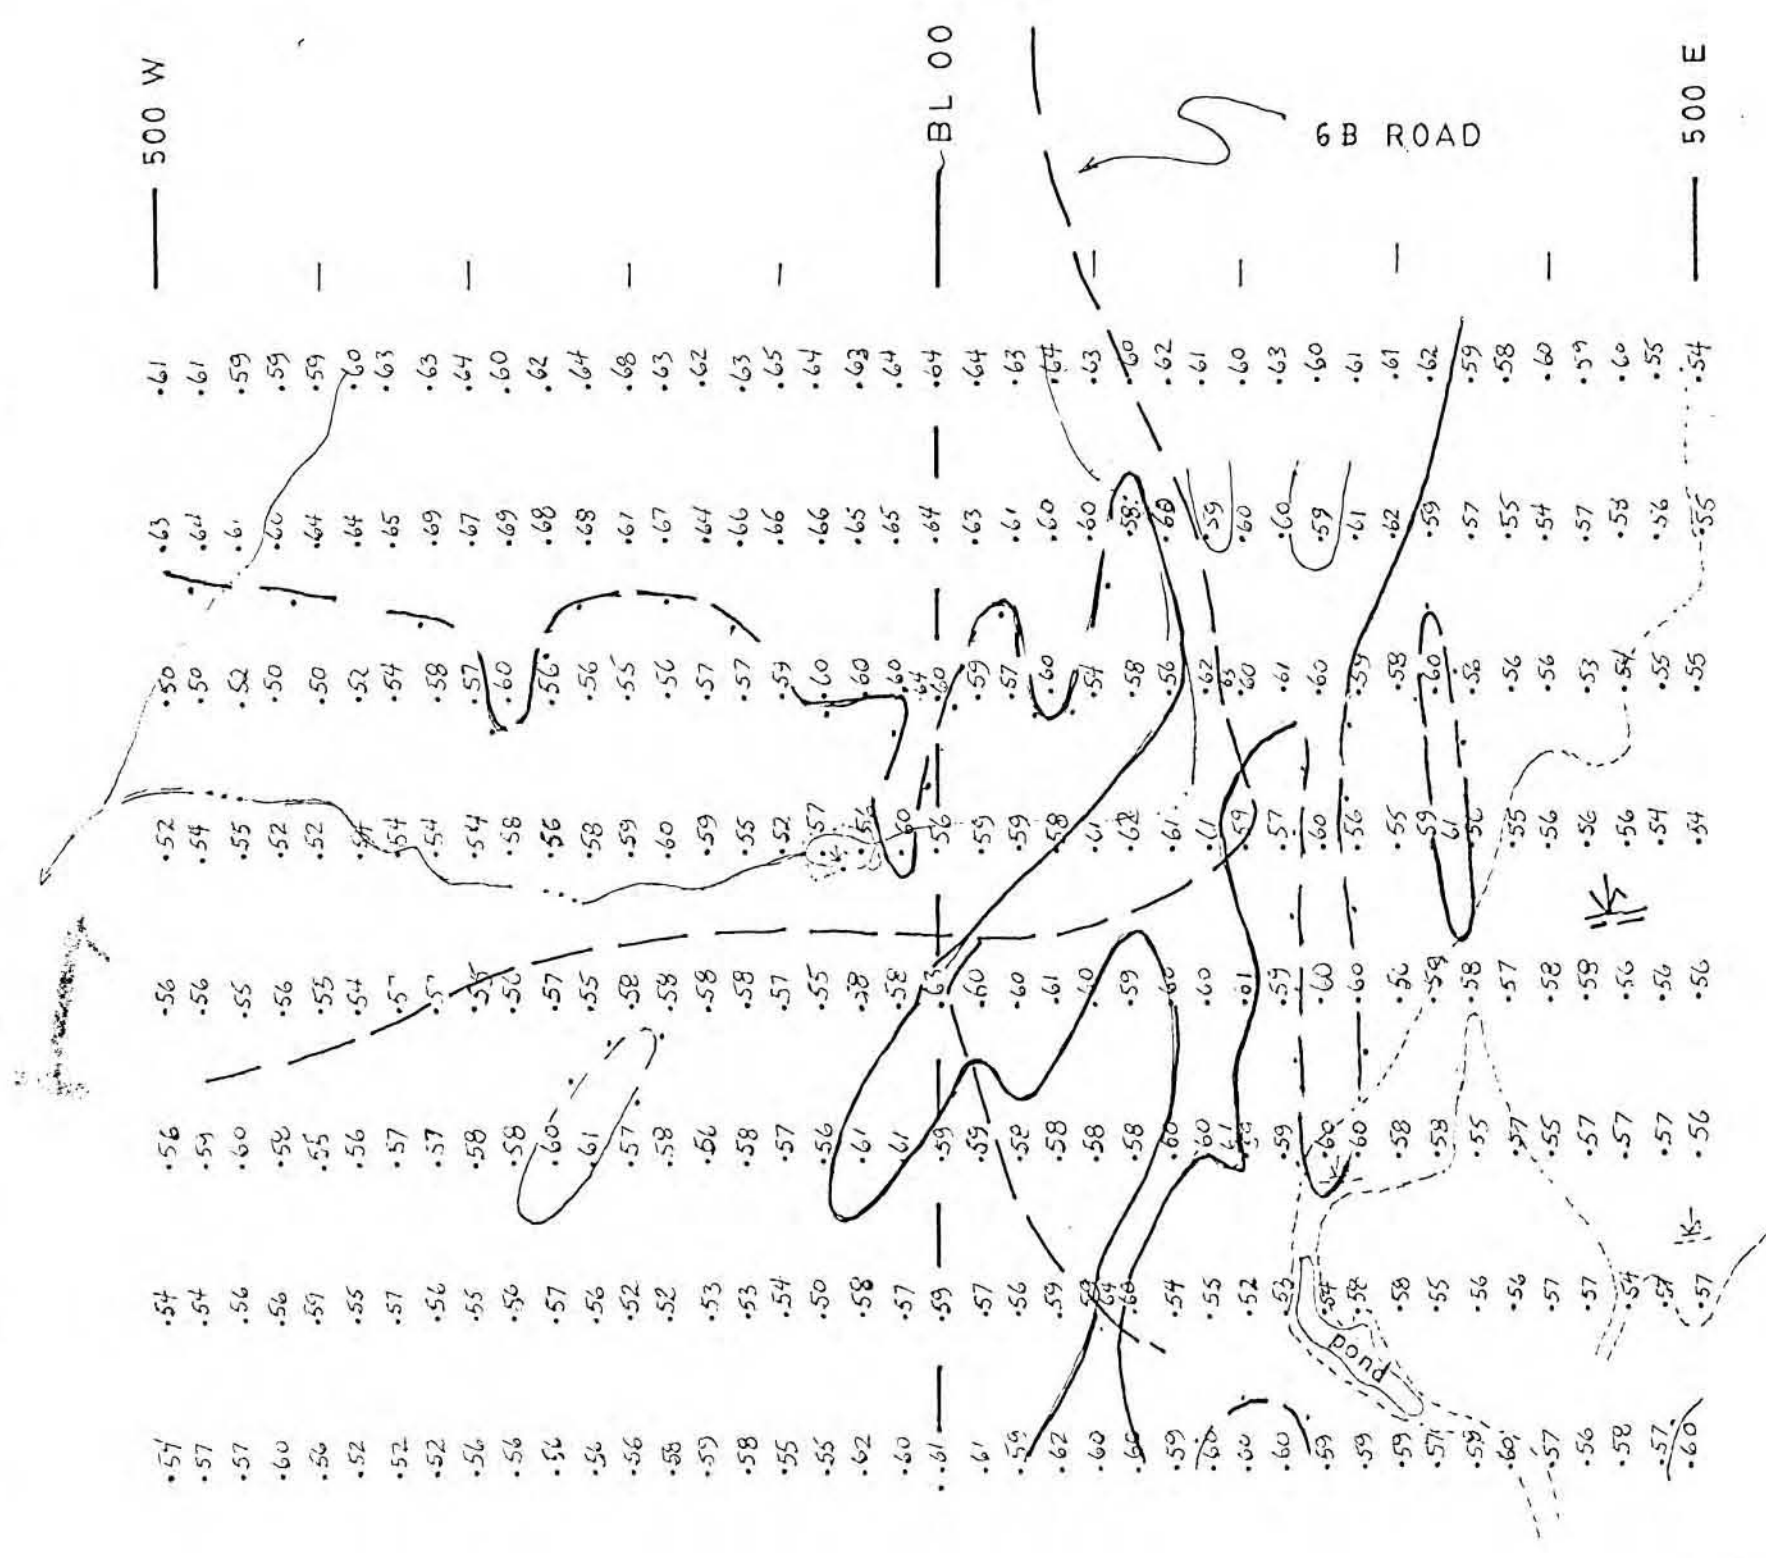 500 W
BL 00
6B ROAD
500 E
.61 .61 .59 .59 .59 .60 .63 .63 .64 .60 .62 .64 .68 .63 .62 .63 .65 .64 .63 .64 .64 .64 .63 .64 .63 .60 .62 .61 .60 .63 .60 .61 .61 .62 .59 .58 .60 .59 .60 .55 .54
.63 .64 .61 .64 .64 .65 .69 .67 .69 .68 .68 .67 .67 .64 .66 .66 .66 .65 .65 .64 .63 .61 .60 .60 .58 .60 .59 .60 .60 .59 .61 .62 .59 .57 .55 .54 .57 .58 .56 .55
.50 .50 .52 .50 .50 .52 .54 .58 .57 .60 .56 .56 .55 .56 .57 .57 .59 .60 .60 .60 .64 .60 .59 .57 .60 .54 .58 .56 .62 63 .60 .61 .60 .59 .58 .60 .56 .56 .56 .53 .54 .55 .55
.52 .54 .55 .52 .52 .54 .54 .54 .54 .58 .56 .58 .59 .60 .59 .55 .52 .57 .56 .60 .56 .59 .59 .58 .61 .62 .61 .61 .59 .57 .60 .56 .55 .59 61 .56 .55 .56 .56 .56 .54 .54
.56 .56 .55 .56 .55 .54 .57 .57 .55 .56 .57 .55 .58 .58 .58 .58 .57 .55 .58 .58 .63 .60 .60 .61 .60 .59 .60 .60 .61 .59 .60 .60 .56 .58 .58 .57 .58 .58 .56 .56 .56
.56 .59 .60 .58 .55 .56 .57 .57 .58 .58 .60 .61 .57 .58 .56 .58 .57 .56 .61 .61 .59 .59 .58 .58 .58 .58 .60 .60 .61 .59 .60 .60 .58 .58 .55 .57 .55 .57 .57 .57 .56
.54 .54 .56 .56 .59 .55 .57 .56 .55 .56 .57 .56 .52 .52 .53 .53 .54 .50 .58 .57 .59 .57 .56 .59 64 .60 .54 .55 .52 .53 .54 .58 .58 .55 .56 .56 .57 .57 .54 .54 .57
pond
.57 .57 .57 .60 .56 .52 .52 .52 .56 .56 .56 .56 .56 .58 .59 .58 .55 .55 .62 .60 .61 .61 .59 .62 .60 .60 .59 .60 .60 .60 .59 .59 .59 .57 .59 .60 .57 .56 .58 .57 .60